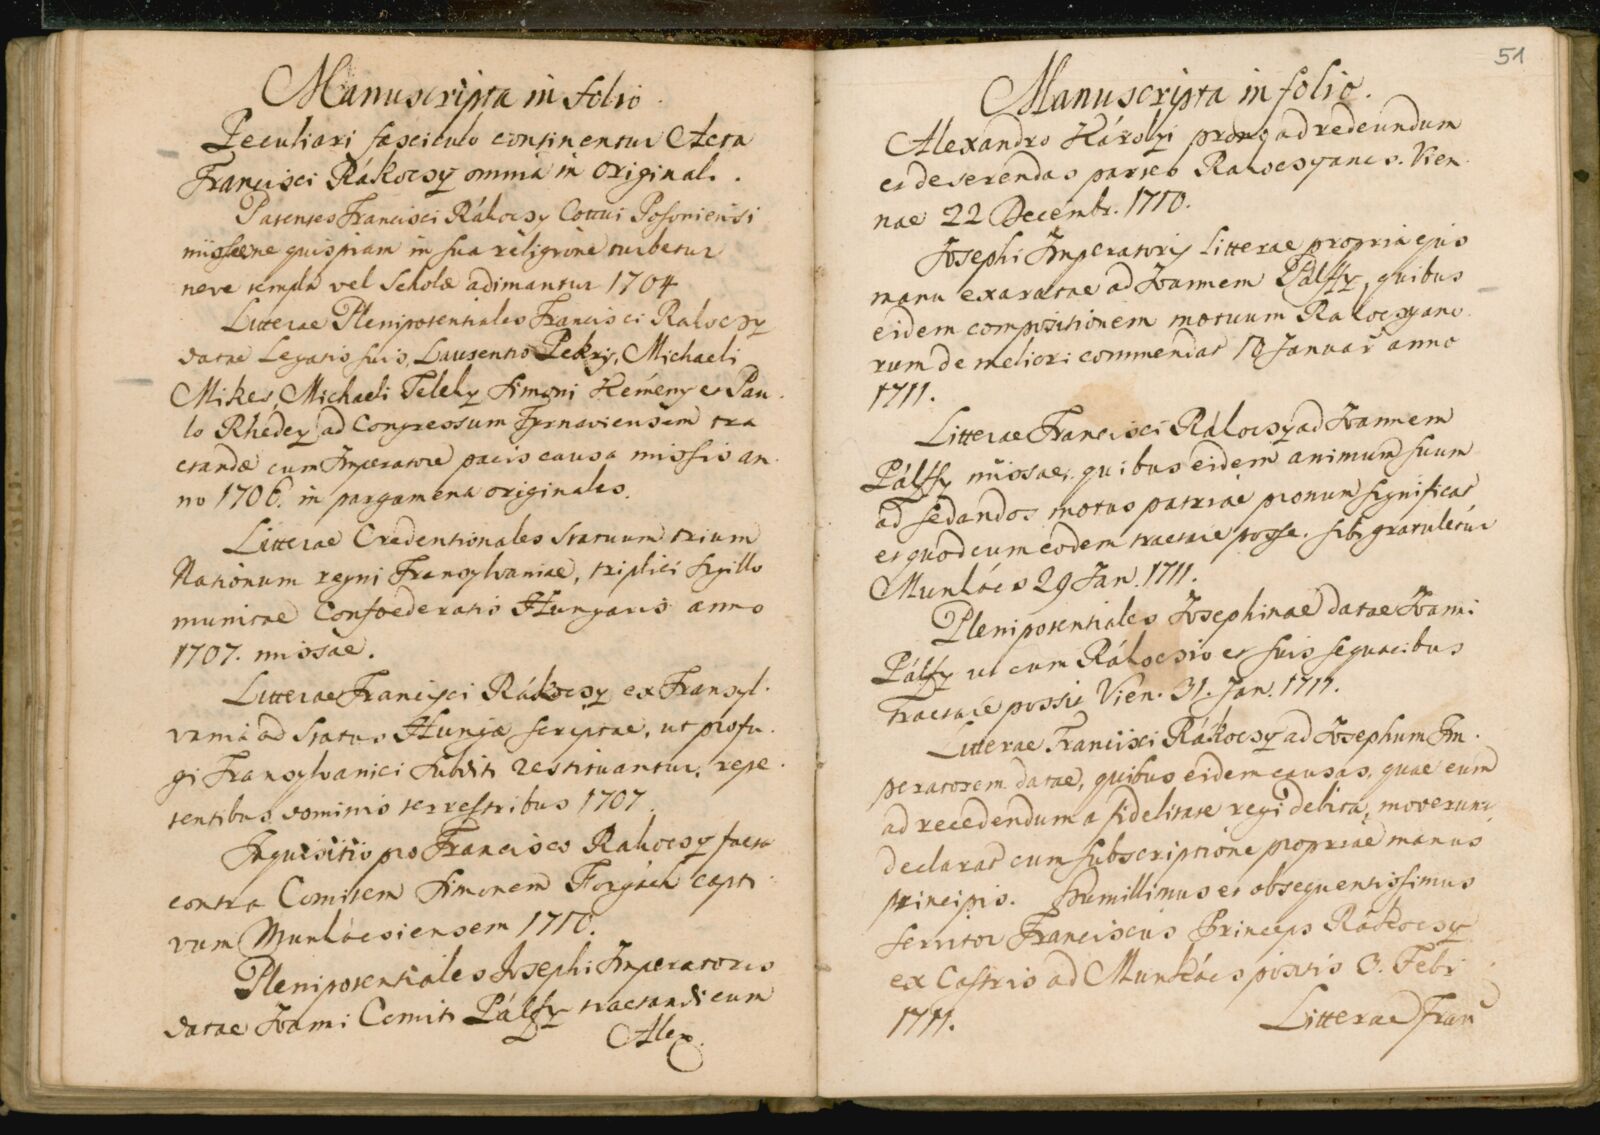 Manuscripta in folio.
Peculiari fasciculo continentur Acta
Francisci Rákoczy omnia in Original.
Patentes Francisci Rákoczy Cottui Posoniensi
missae ne quispiam in sua religione turbetur
neve templa vel Scholae adimantur 1704
Litterae Plenipotentiales Francisci Rakoczy
datae Legatis suis, Laurentio Pekry, Michaeli
Mikes, Michaeli Teleky Simoni Kemény et Pau-
lo Rhédey ad Congressum Tyrnaviensem tra
ctandae cum Imperatore pacis causa missis an-
no 1706. in pargamena originales.
Litterae Credentionales Statuum trium
Nationum regni Transylvaniae, triplici sigillo
munitae Confoederatis Hungaris anno
1707. missae.
Litterae Francisci Rákoczy ex Transyl-
vania ad Status Hungae scriptae, ut profu-
gi Transylvanici subditi restituantur, repe-
tentibus dominis terrestribus 1707.
Inquisitio pro Francisco Rakoczy facta
contra Comitem Simonem Forgách capti-
vum Munkácsiensem 1710.
Plenipotentiales Josephi Imperatoris
datae Joanni Comiti Pálffy tractandi cum
Alex.
51
Manuscripta in folio.
Alexandro Károlyi prong ad redeundum
et deserendas partes Rakoczyanas. Vien-
nae 22 Decembr. 1710.
Josephi Imperatoris Litterae propria ejus
manu exaratae ad Joannem Pálffy, quibus
eidem compositionem motuum Rakoczyano-
rum de meliori commendat 18 Januar anno
1711.
Litterae Francisci Rákoczy ad Joannem
Pálffy missae, quibus eidem animum suum
ad sedandos motus patriae pronum significat
et quod cum eodem tractare posse. sibi gratuletur
Munkács 29 Jan. 1711.
Plenipotentiales Josephinae datae Joanni
Pálffy ut cum Rákoczio et suis sequacibus
tractare possit Vien. 31. Jan. 1711.
Litterae Francisci Rákoczy ad Josephum Im-
peratorem datae, quibus eidem causas, quae eum
ad recedendum a fidelitate regi debita, moverunt
declarat cum subscriptione propriae manus
principis. Humillimus et obsequentissimus
servitor Franciscus Princeps Rákoczy
ex Castris ad Munkács positis 3. Febr.
1711.
Litterae Fran